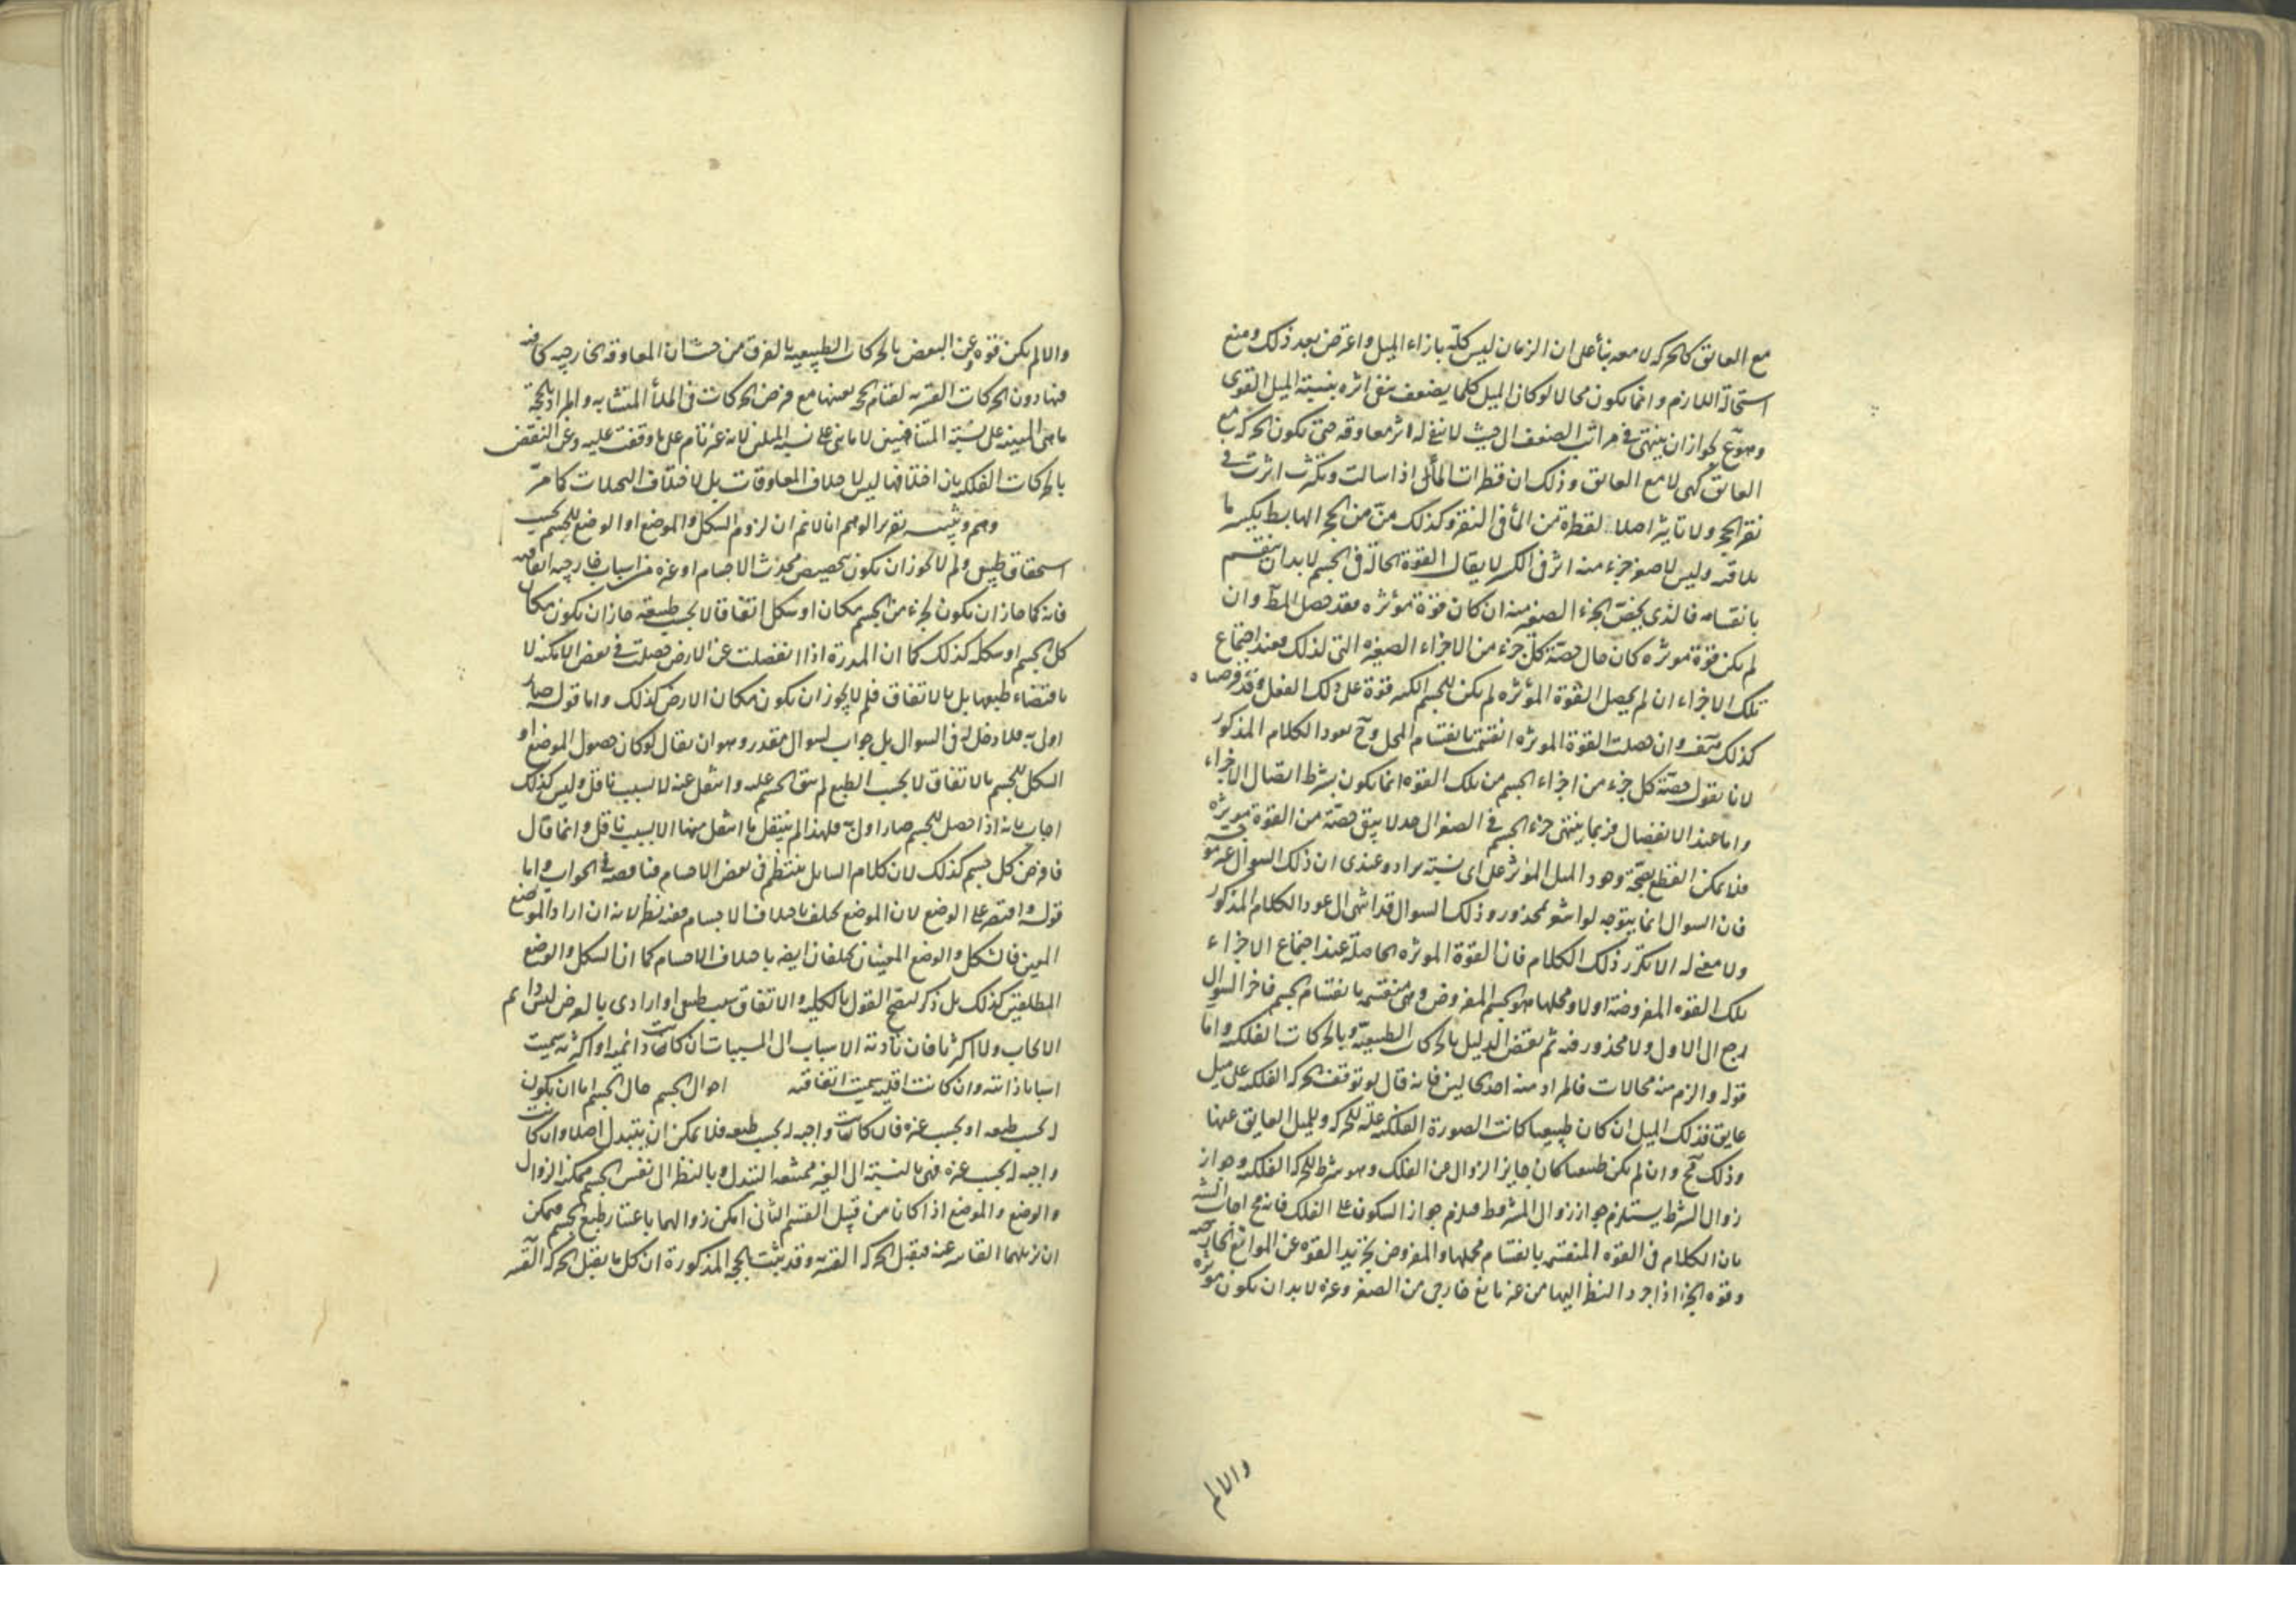 مع العائق كالحركة لا معه بناء على ان الزمان ليس كله بازاء الميل واعترض بعد ذلك ومنع
استحالة اللازم وانما يكون محالا لو كان الميل كلما يضعف بقى اثره بنسبة الميل القوى
وهو ع لجواز ان ينتهى فى مراتب الضعف الى حيث لا يبقى له اثر معاوقة حتى يكون الحركة مع
العائق كهى لا مع العائق وذلك ان قطرات الماء اذا سالت وتكثرت اثرت فى
نقر الحجر ولا تأثير اصلا لقطرة من الماء فى النقر وكذلك من من الحجر الهابط يكسر ما
يلاقيه وليس لاصغر جزء منه اثر فى الكسر لا يقال القوة الحالة فى الجسم لا بد ان تنقسم
بانقسامه فالذى يخص الجزء الصغير منه ان كان قوة مؤثرة فقد حصل المط وان
لم يكن قوة مؤثرة كان حال حصة كل جزء من الاجزاء الصغيرة التى لذلك فعند اجتماع
تلك الاجزاء ان لم يحصل القوة المؤثرة لم يكن للجسم الكبير قوة على ذلك الفعل وقد فرضناه
كذلك هف وان حصلت القوة المؤثرة انقسمت بانقسام المحل وح يعود الكلام المذكور
لانا نقول حصة كل جزء من اجزاء الجسم من تلك القوة انما يكون بشرط اتصال الاجزاء
واما عند الانفصال فربما ينتهى جزء الجسم فى الصغر الى حد لا يبقى حصة من القوة مؤثرة
فلا يمكن القطع بصحة وجود الميل المؤثر على اى نسبة يراد وعندى ان ذلك السؤال غير موجه
فان السؤال انما يتوجه لو انتهى لمحذور وذلك السوال قد انتهى الى عود الكلام المذكور
ولا معنى له الا تكرر ذلك الكلام فان القوة المؤثرة الحاصلة عند اجتماع الاجزاء
تلك القوة المفروضة اولا ومحلها هو الجسم المفروض وهى منقسمة بانقسام الجسم فاخر السوال
رجع الى الاول ولا محذور فيه ثم نقض الدليل بالحركات الطبيعية وبالحركات الفلكية واما
قوله والزم منه محالات فالمراد منه احد محالين فانه قال لو توقف الحركة الفلكية على ميل
عايق فذلك الميل ان كان طبيعيا كانت الصورة الفلكية علة للحركة وللميل العايق عنها
وذلك مح وان لم يكن طبيعيا كان جايز الزوال عن الفلك وهو شرط للحركة الفلكية وجواز
زوال الشرط يستلزم جواز زوال المشروط فيلزم جواز السكون على الفلك فانه مح اجاب
بان الكلام فى القوة المنقسمة بانقسام محلها والمفروض تجريد القوة عن الموانع الخارجية
وقوة الجزء اذا جرد النظر اليها من غير مانع خارجى من الصغر وغيره لا بد ان يكون مؤثرة
والا لم
والا لم يكن قوة وعن البعض بالحركات الطبيعية بالفرق من حيث ان المعاوقة الخارجية كافية
فيها دون الحركات القسرية لقيام الحجة بعينها مع فرض الحركات فى الملأ المتشابه والمراد بالحجة
ما هى المبينة على نسبة المتناهيين لا ما بنى على نسبة الميلين لانه غير تام على ما وقفت عليه وعن النقض
بالحركات الفلكية بان اختلافها ليس لاختلاف المعاوقات بل لاختلاف التخيلات كما مر
وهم وتنبيه تقرير الوهم انا لا نم ان لزوم الشكل والموضع او الوضع للجسم بحسب
استحقاق طبيعى ولم لا يجوز ان يكون بتخصيص محدث الاجسام او غيره من اسباب خارجية اتفاقية
فانه كما جاز ان يكون لجزء من الجسم مكان او شكل اتفاقا لا بحسب طبيعته جاز ان يكون مكان
كل الجسم او شكله كذلك كما ان المدرة اذا انفصلت عن الارض حصلت فى بعض الامكنة لا
باقتضاء طبعها بل بالاتفاق فلم لا يجوز ان يكون مكان الارض كذلك واما قوله صار
اولى به فلا دخل له فى السوال بل جواب لسوال مقدر وهو ان يقال لو كان حصول الموضع او
الشكل للجسم بالاتفاق لا بحسب الطبع لم يبق الجسم عليه وانتقل عنه لا لسبب ناقل وليس كذلك
اجاب بانه اذا حصل للجسم صار اولى به فلهذا لم ينتقل ما انتقل منها الا بسبب ناقل وانما قال
فافرض كل جسم كذلك لان كلام السايل ينتظم فى بعض الاجسام فناقضه فى الجواب واما
قوله واقتصر على الوضع لان الموضع يختلف باختلاف الاجسام ففيه نظر لانه ان اراد الموضع
المعين فالشكل والوضع المعينان يختلفان ايضا باختلاف الاجسام كما ان الشكل والوضع
المطلقين كذلك بل ذكر ليصح القول بالكلية والاتفاق بسبب طبيعى او ارادى بالعرض ليس دايم
الايجاب ولا اكثريا فان تأدية الاسباب الى المسببات ان كانت دائمة او اكثرية سميت
اسبابا ذاتية وان كانت اقلية سميت اتفاقية احوال الجسم حال الجسم اما ان يكون
له بحسب طبعه او بحسب غيره فان كانت واجبة له بحسب طبعه فلا يمكن ان يتبدل اصلا وان كانت
واجبة له بحسب غيره فهى بالنسبة الى الغير ممتنعة التبدل وبالنظر الى نفس الجسم ممكنة الزوال
والوضع والموضع اذا كانا من قبيل القسم الثانى امكن زوالهما باعتبار طبع الجسم فيمكن
ان يزيلهما القاسر عنه فيقبل الحركة القسرية وقد ثبت بالحجة المذكورة ان كل ما يقبل الحركة القسرية